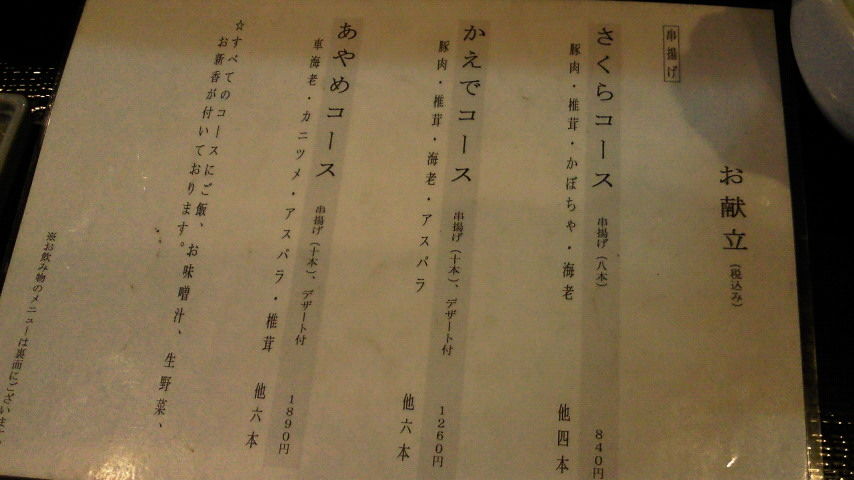 お献立（税込み）
串揚げ
さくらコース 串揚げ（八本） 840円
豚肉・椎茸・かぼちゃ・海老 他四本
かえでコース 串揚げ（十本）、デザート付 1260円
豚肉・椎茸・海老・アスパラ 他六本
あやめコース 串揚げ（十本）、デザート付 1890円
車海老・カニツメ・アスパラ・椎茸 他六本
☆すべてのコースにご飯、お味噌汁、生野菜、
お新香が付いております。
※お飲み物のメニューは裏面にございます